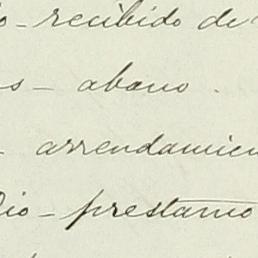 recibido de
– abono .
arrendamien
– prestamo